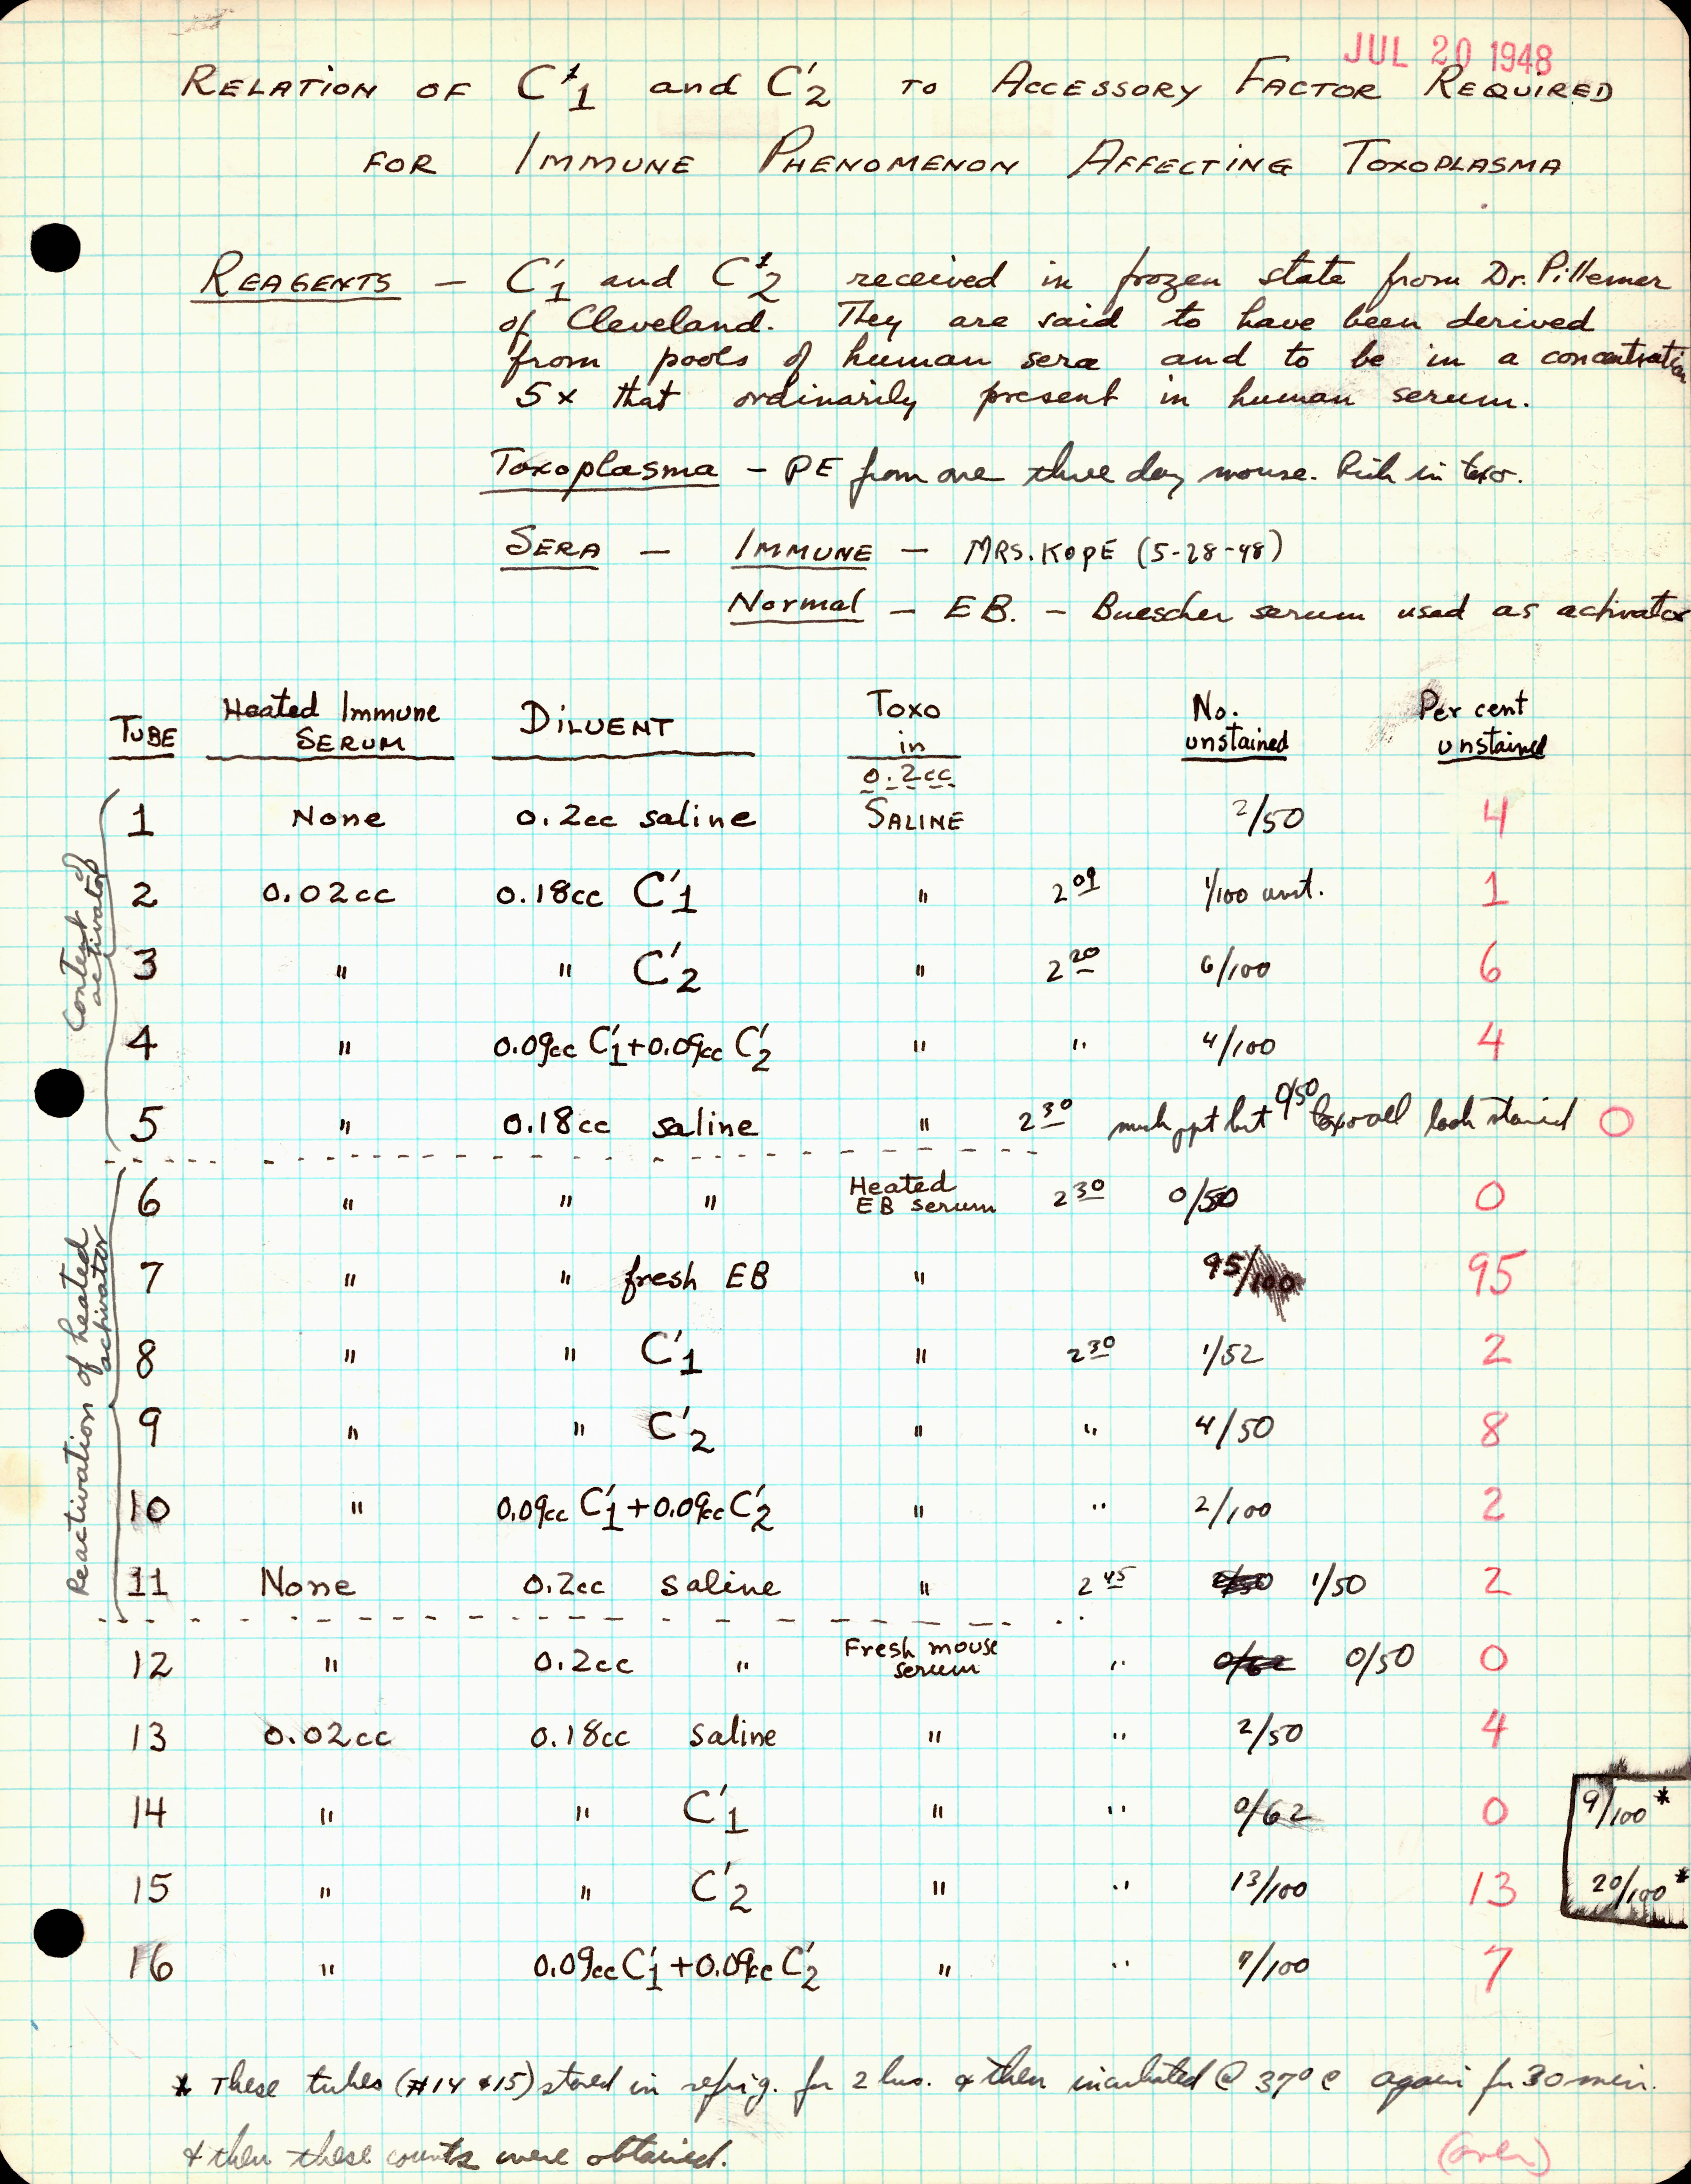 JUL 20 1948
RELATION OF C'1 and C'2 TO ACCESSORY FACTOR REQUIRED
FOR IMMUNE PHENOMENON AFFECTING TOXOPLASMA
REAGENTS — C'1 and C'2 received in frozen state from Dr. Pillemer
of Cleveland. They are said to have been derived
from pools of human sera and to be in a concentration
5x that ordinarily present in human serum.
Toxoplasma - PE from one three day mouse. Rich in toxo.
SERA — IMMUNE — MRS. KOPE (5-28-48)
Normal — EB. - Buescher serum used as activator
TUBE Heated Immune SERUM DILUENT Toxo in 0.2cc No. unstained Per cent unstained
Content of activator
1 None 0.2cc saline SALINE 2/50 4
2 0.02cc 0.18cc C'1 " 2 09 1/100 unst. 1
3 " " C'2 " 2 20 6/100 6
4 " 0.09cc C'1+0.09cc C'2 " " 4/100 4
5 " 0.18cc saline " 2 30 much ppt but 0/50 toxo all look stained 0
Reactivation of heated activator
6 " " " Heated EB serum 2 30 0/50 0
7 " " fresh EB " 95/100 95
8 " " C'1 " 2 30 1/52 2
9 " " C'2 " " 4/50 8
10 " 0.09cc C'1+0.09cc C'2 " " 2/100 2
11 None 0.2cc saline " 2 45 1/50 2
12 " 0.2cc " Fresh mouse serum " 0/62 0/50 0
13 0.02cc 0.18cc saline " " 2/50 4
14 " " C'1 " " 0/62 0 9/100 *
15 " " C'2 " " 13/100 13 20/100 *
16 " 0.09cc C'1+0.09cc C'2 " " 7/100 7
* These tubes (#14 & 15) stored in refrig. for 2 hrs. & then incubated @ 37° C again for 30 min.
& then these counts were obtained.
(over)